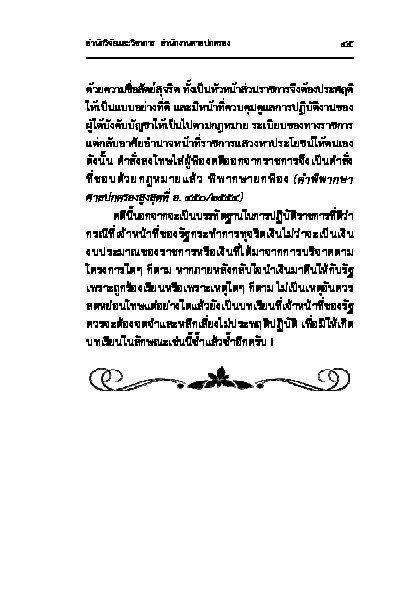 สำนักวิจัยและวิชาการ สำนักงานศาลปกครอง ๔๕
ด้วยความซื่อสัตย์สุจริต ทั้งเป็นหัวหน้าส่วนราชการจึงต้องประพฤติ
ให้เป็นแบบอย่างที่ดี และมีหน้าที่ควบคุมดูแลการปฏิบัติงานของ
ผู้ใต้บังคับบัญชาให้เป็นไปตามกฎหมาย ระเบียบของทางราชการ
แต่กลับอาศัยอำนาจหน้าที่ราชการแสวงหาประโยชน์ให้ตนเอง
ดังนั้น คำสั่งลงโทษไล่ผู้ฟ้องคดีออกจากราชการจึงเป็นคำสั่ง
ที่ชอบด้วยกฎหมายแล้ว พิพากษายกฟ้อง (คำพิพากษา
ศาลปกครองสูงสุดที่ อ. ๔๕๐/๒๕๕๔)
คดีนี้นอกจากจะเป็นบรรทัดฐานในการปฏิบัติราชการที่ดีว่า
กรณีที่เจ้าหน้าที่ของรัฐกระทำการทุจริตเงินไม่ว่าจะเป็นเงิน
งบประมาณของราชการหรือเงินที่ได้มาจากการบริจาคตาม
โครงการใดๆ ก็ตาม หากภายหลังกลับใจนำเงินมาคืนให้กับรัฐ
เพราะถูกร้องเรียนหรือเพราะเหตุใดๆ ก็ตาม ไม่เป็นเหตุอันควร
ลดหย่อนโทษแต่อย่างใดแล้วยังเป็นบทเรียนที่เจ้าหน้าที่ของรัฐ
ควรจะต้องจดจำและหลีกเลี่ยงไม่ประพฤติปฏิบัติ เพื่อมิให้เกิด
บทเรียนในลักษณะเช่นนี้ซ้ำแล้วซ้ำอีกครับ !